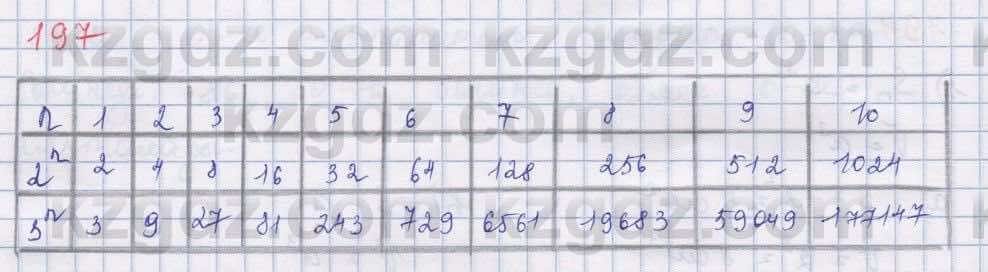 197
kzgdz.com kzgdz.com
n 1 2 3 4 5 6 7 8 9 10
kzgdz.com
2ⁿ 2 4 8 16 32 64 128 256 512 1024
3ⁿ 3 9 27 81 243 729 6561 19683 59049 177147
kzgdz.com kzgdz.com